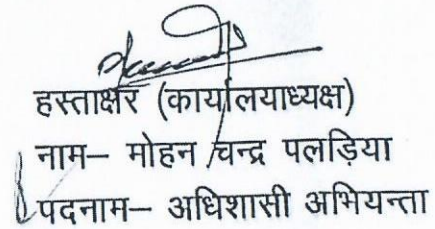 हस्ताक्षर (कार्यालयाध्यक्ष)
नाम– मोहन चन्द्र पलड़िया
पदनाम– अधिशासी अभियन्ता